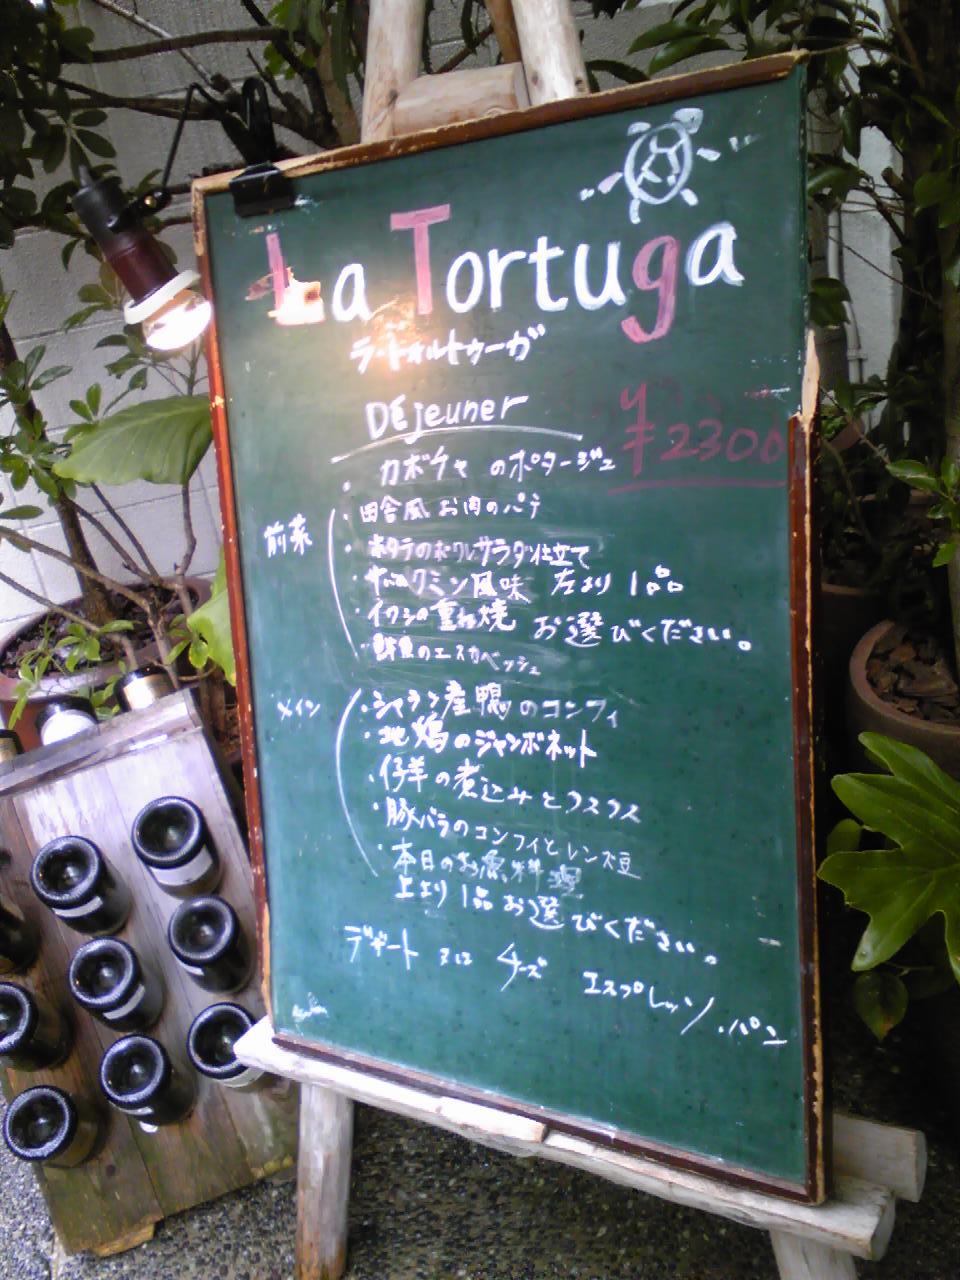 La Tortuga
ラ・トォルトゥーガ
Déjeuner
¥2300
・カボチャのポタージュ
前菜
・田舎風お肉のパテ
・ホタテの サラダ仕立て
クミン風味 左より1品
・イワシの重ね焼 お選びください。
・鮮魚のエスカベッシュ
メイン
・シャラン産鴨のコンフィ
・地鶏のジャンボネット
・仔羊の煮込みとクスクス
・豚バラのコンフィとレンズ豆
・本日のお魚料理
上より1品お選びください。
デザート 又は チーズ エスプレッソ・パン